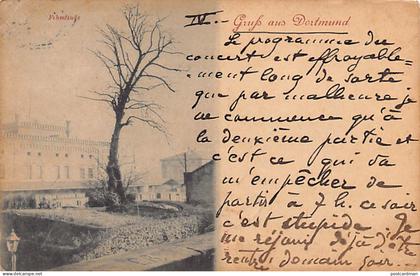 Vehmlinde
IV.
Gruß aus Dortmund
Le programme du
concert est effroyable-
ment long de sorte
que par malheure je
ne commence qu'à
la deuxième partie et
c'est ce qui va
m'empêcher de
partir à 7 h. ce soir
c'est stupide Je
me réjouis déjà d'être
demain soir.
postcardman